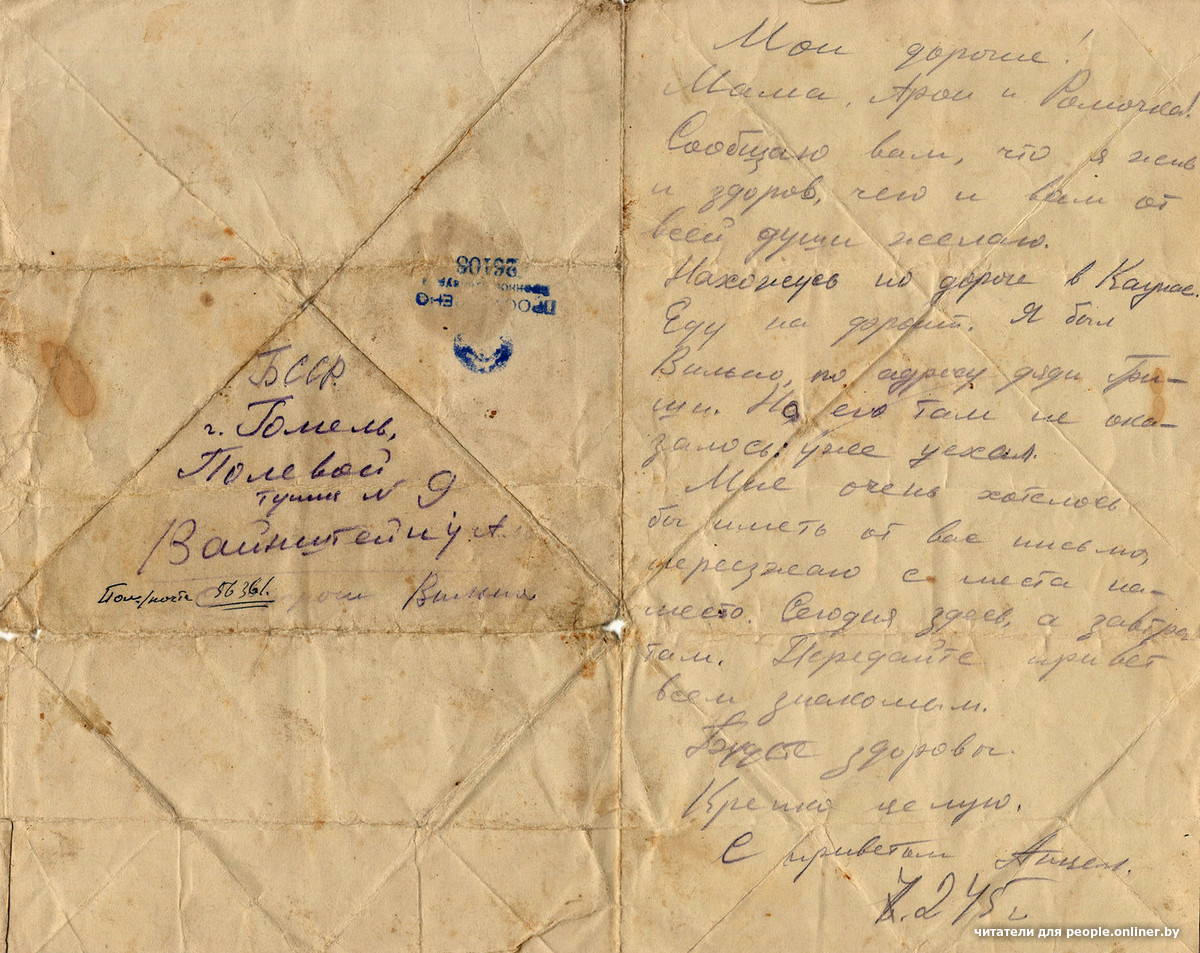 БССР
г. Гомель,
Полевой
тупик N 9
Вайнштейну А
Полев/почта 56361.
Вильно
ПРОС ЕНО
26108
Мои дорогие!
Мама, Арон и Ромочка!
Сообщаю вам, что я жив
и здоров, чего и вам от
всей души желаю.
Нахожусь по дороге в Каунас.
Еду на фронт. Я был
Вильно, по адресу дяди Гри-
ши. Но его там не ока-
залось: уже уехал.
Мне очень хотелось
бы иметь от вас письмо,
переезжаю с места на
место. Сегодня здесь, а завтра
там. Передайте привет
всем знакомым.
Будьте здоровы.
Крепко целую.
С приветом
2 45 г
читатели для people.onliner.by